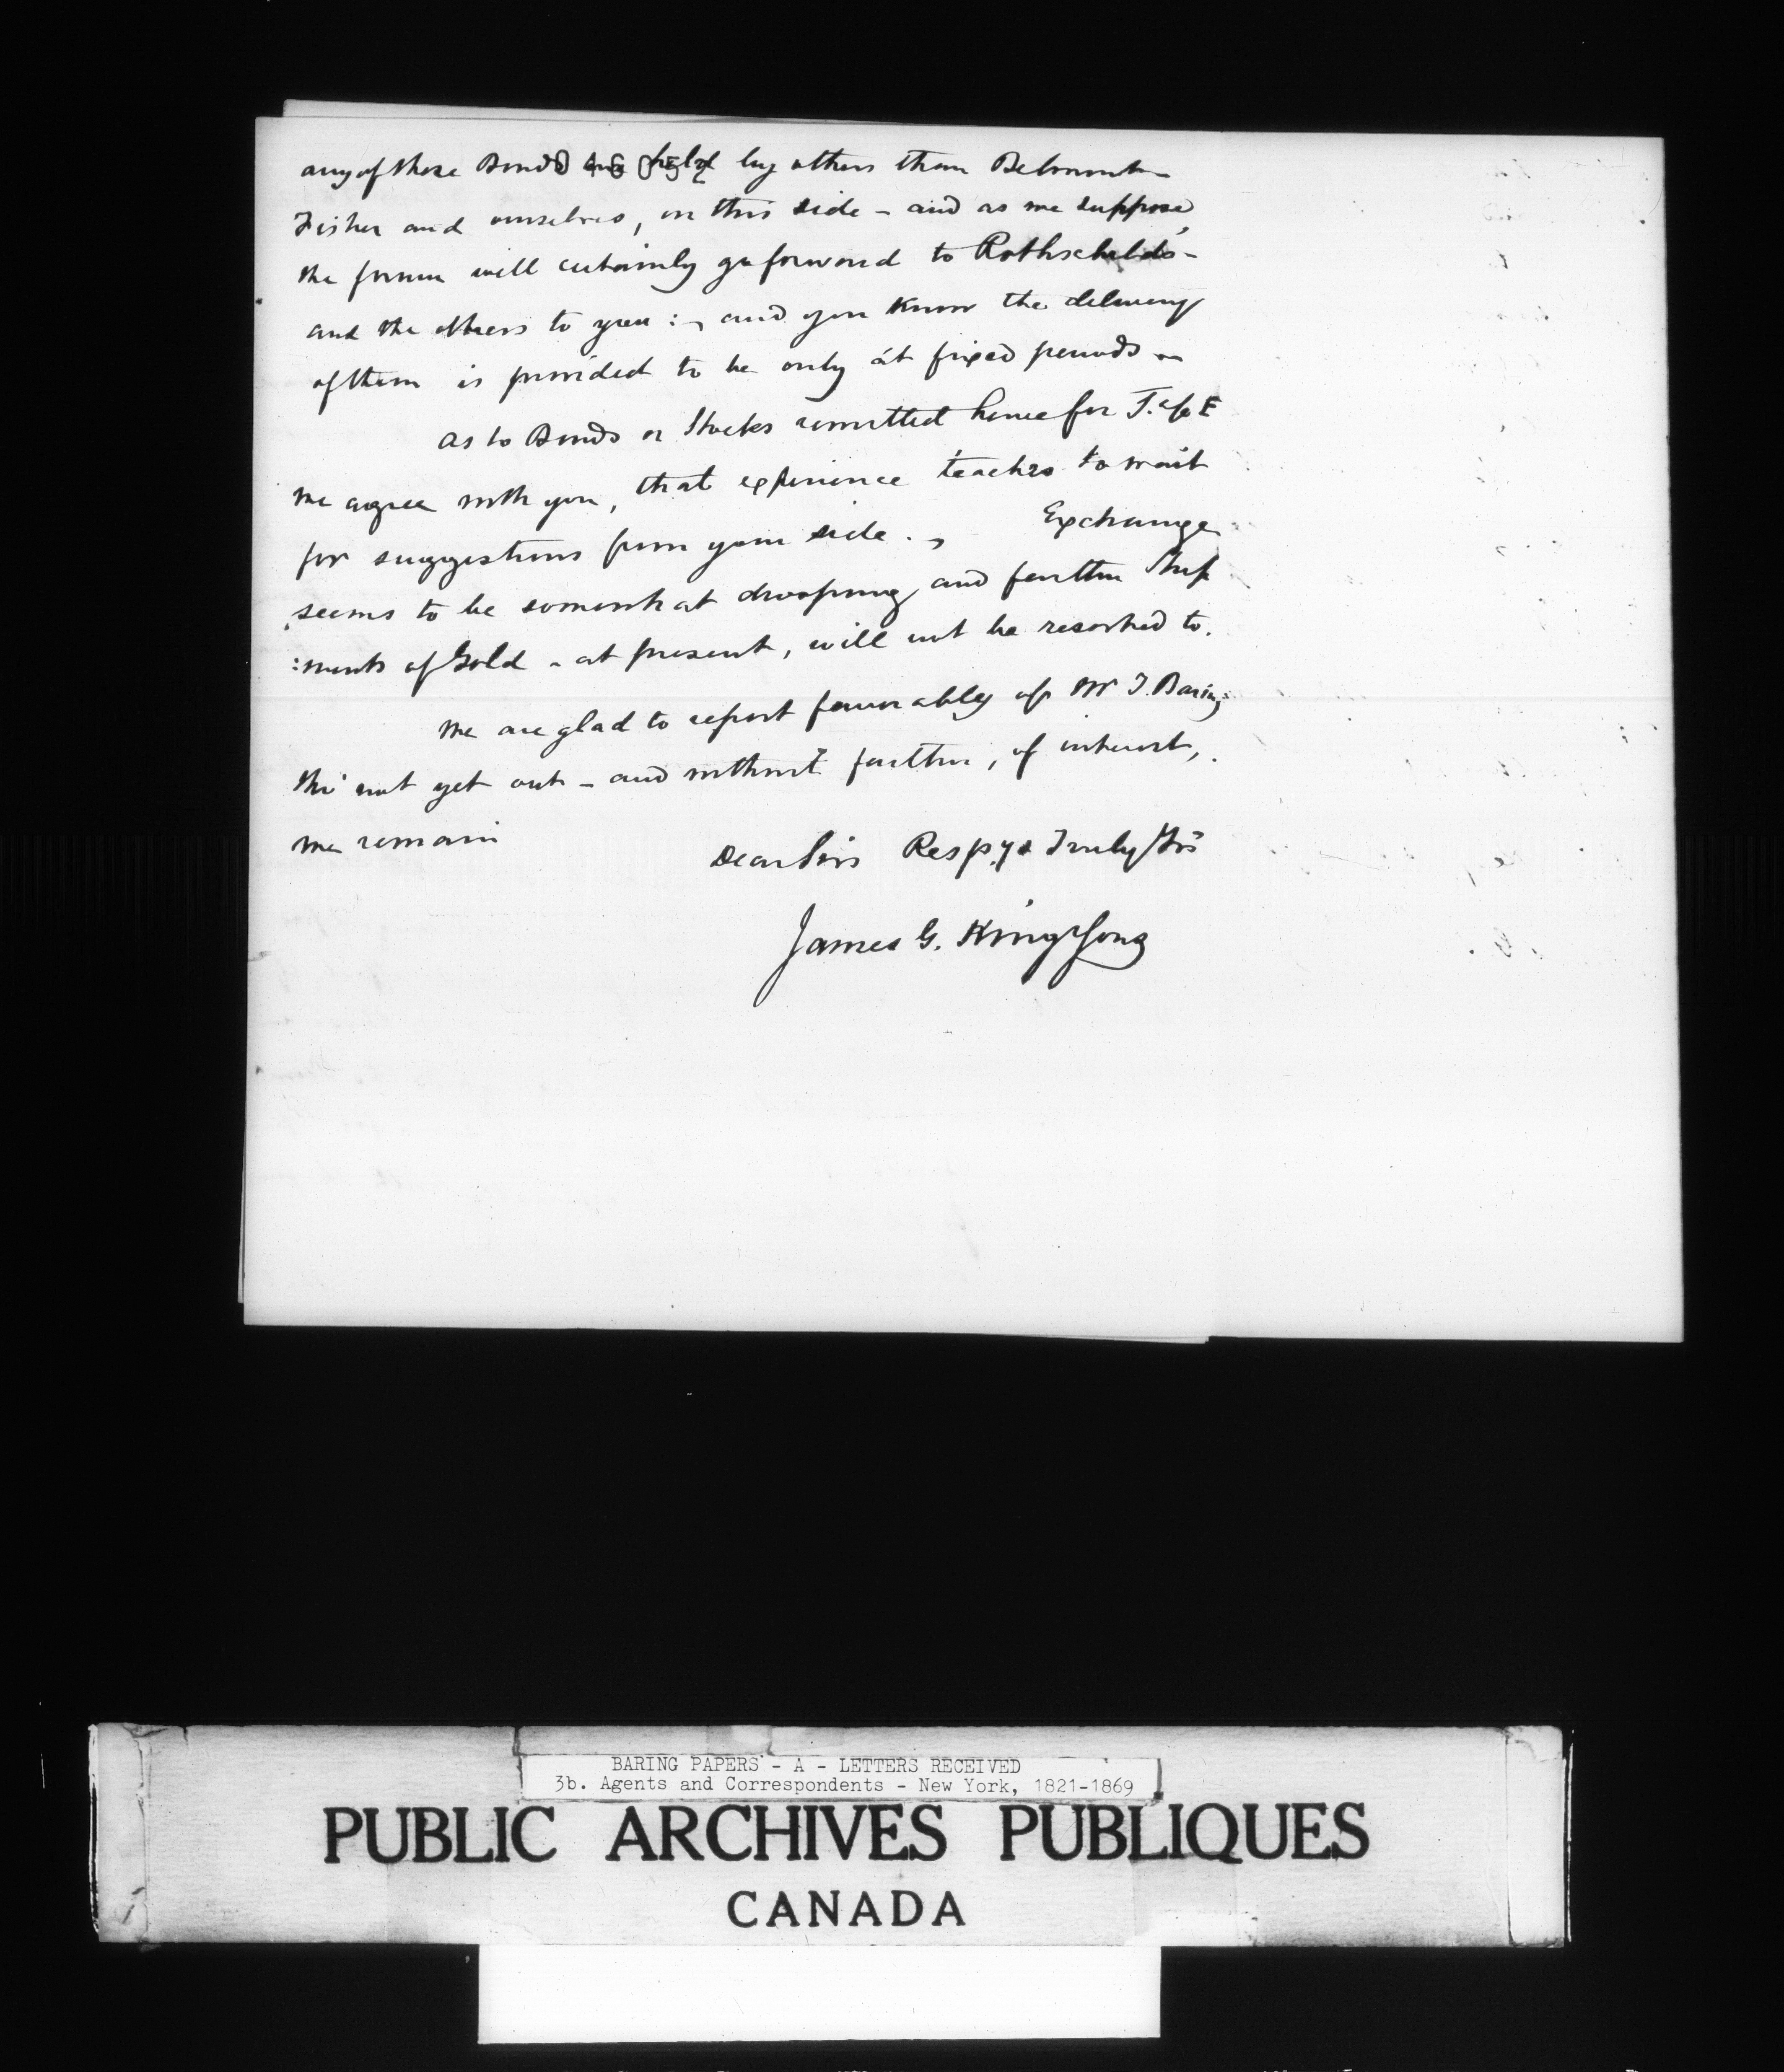 any of those Bonds are held by others than Belmont -
Fisher and ourselves, on this side - and as we suppose,
the former will certainly go forward to Rothschilds -
and the others to you : - and you know the delivery
of them is provided to be only at fixed periods -
As to Bonds or Stocks remitted hence for J. a/c
we agree with you, that experience teaches to wait
for suggestions from your side . - Exchange
seems to be somewhat drooping, and further Ship
:ments of Gold - at present, will not be resorted to.
We are glad to report favorably of Mr T. Baring
tho' not yet out - and without further, of interest,
we remain
Dear Sirs Respy & Truly Yrs
James G. King & Sons
BARING PAPERS - A - LETTERS RECEIVED
3b. Agents and Correspondents - New York, 1821-1869
PUBLIC ARCHIVES PUBLIQUES
CANADA